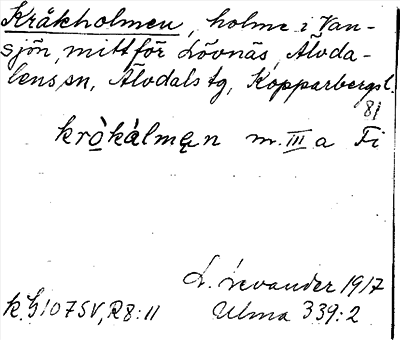 Kråkholmen, holme i Van-
sjön, mittför Lövnäs, Älvda-
lens sn, Älvdals tg, Kopparbergs l.
81
kròkàlmęn m. III a Fi
L. Levander 1917
k. G! 07SV, R8:11 Ulma 339:2